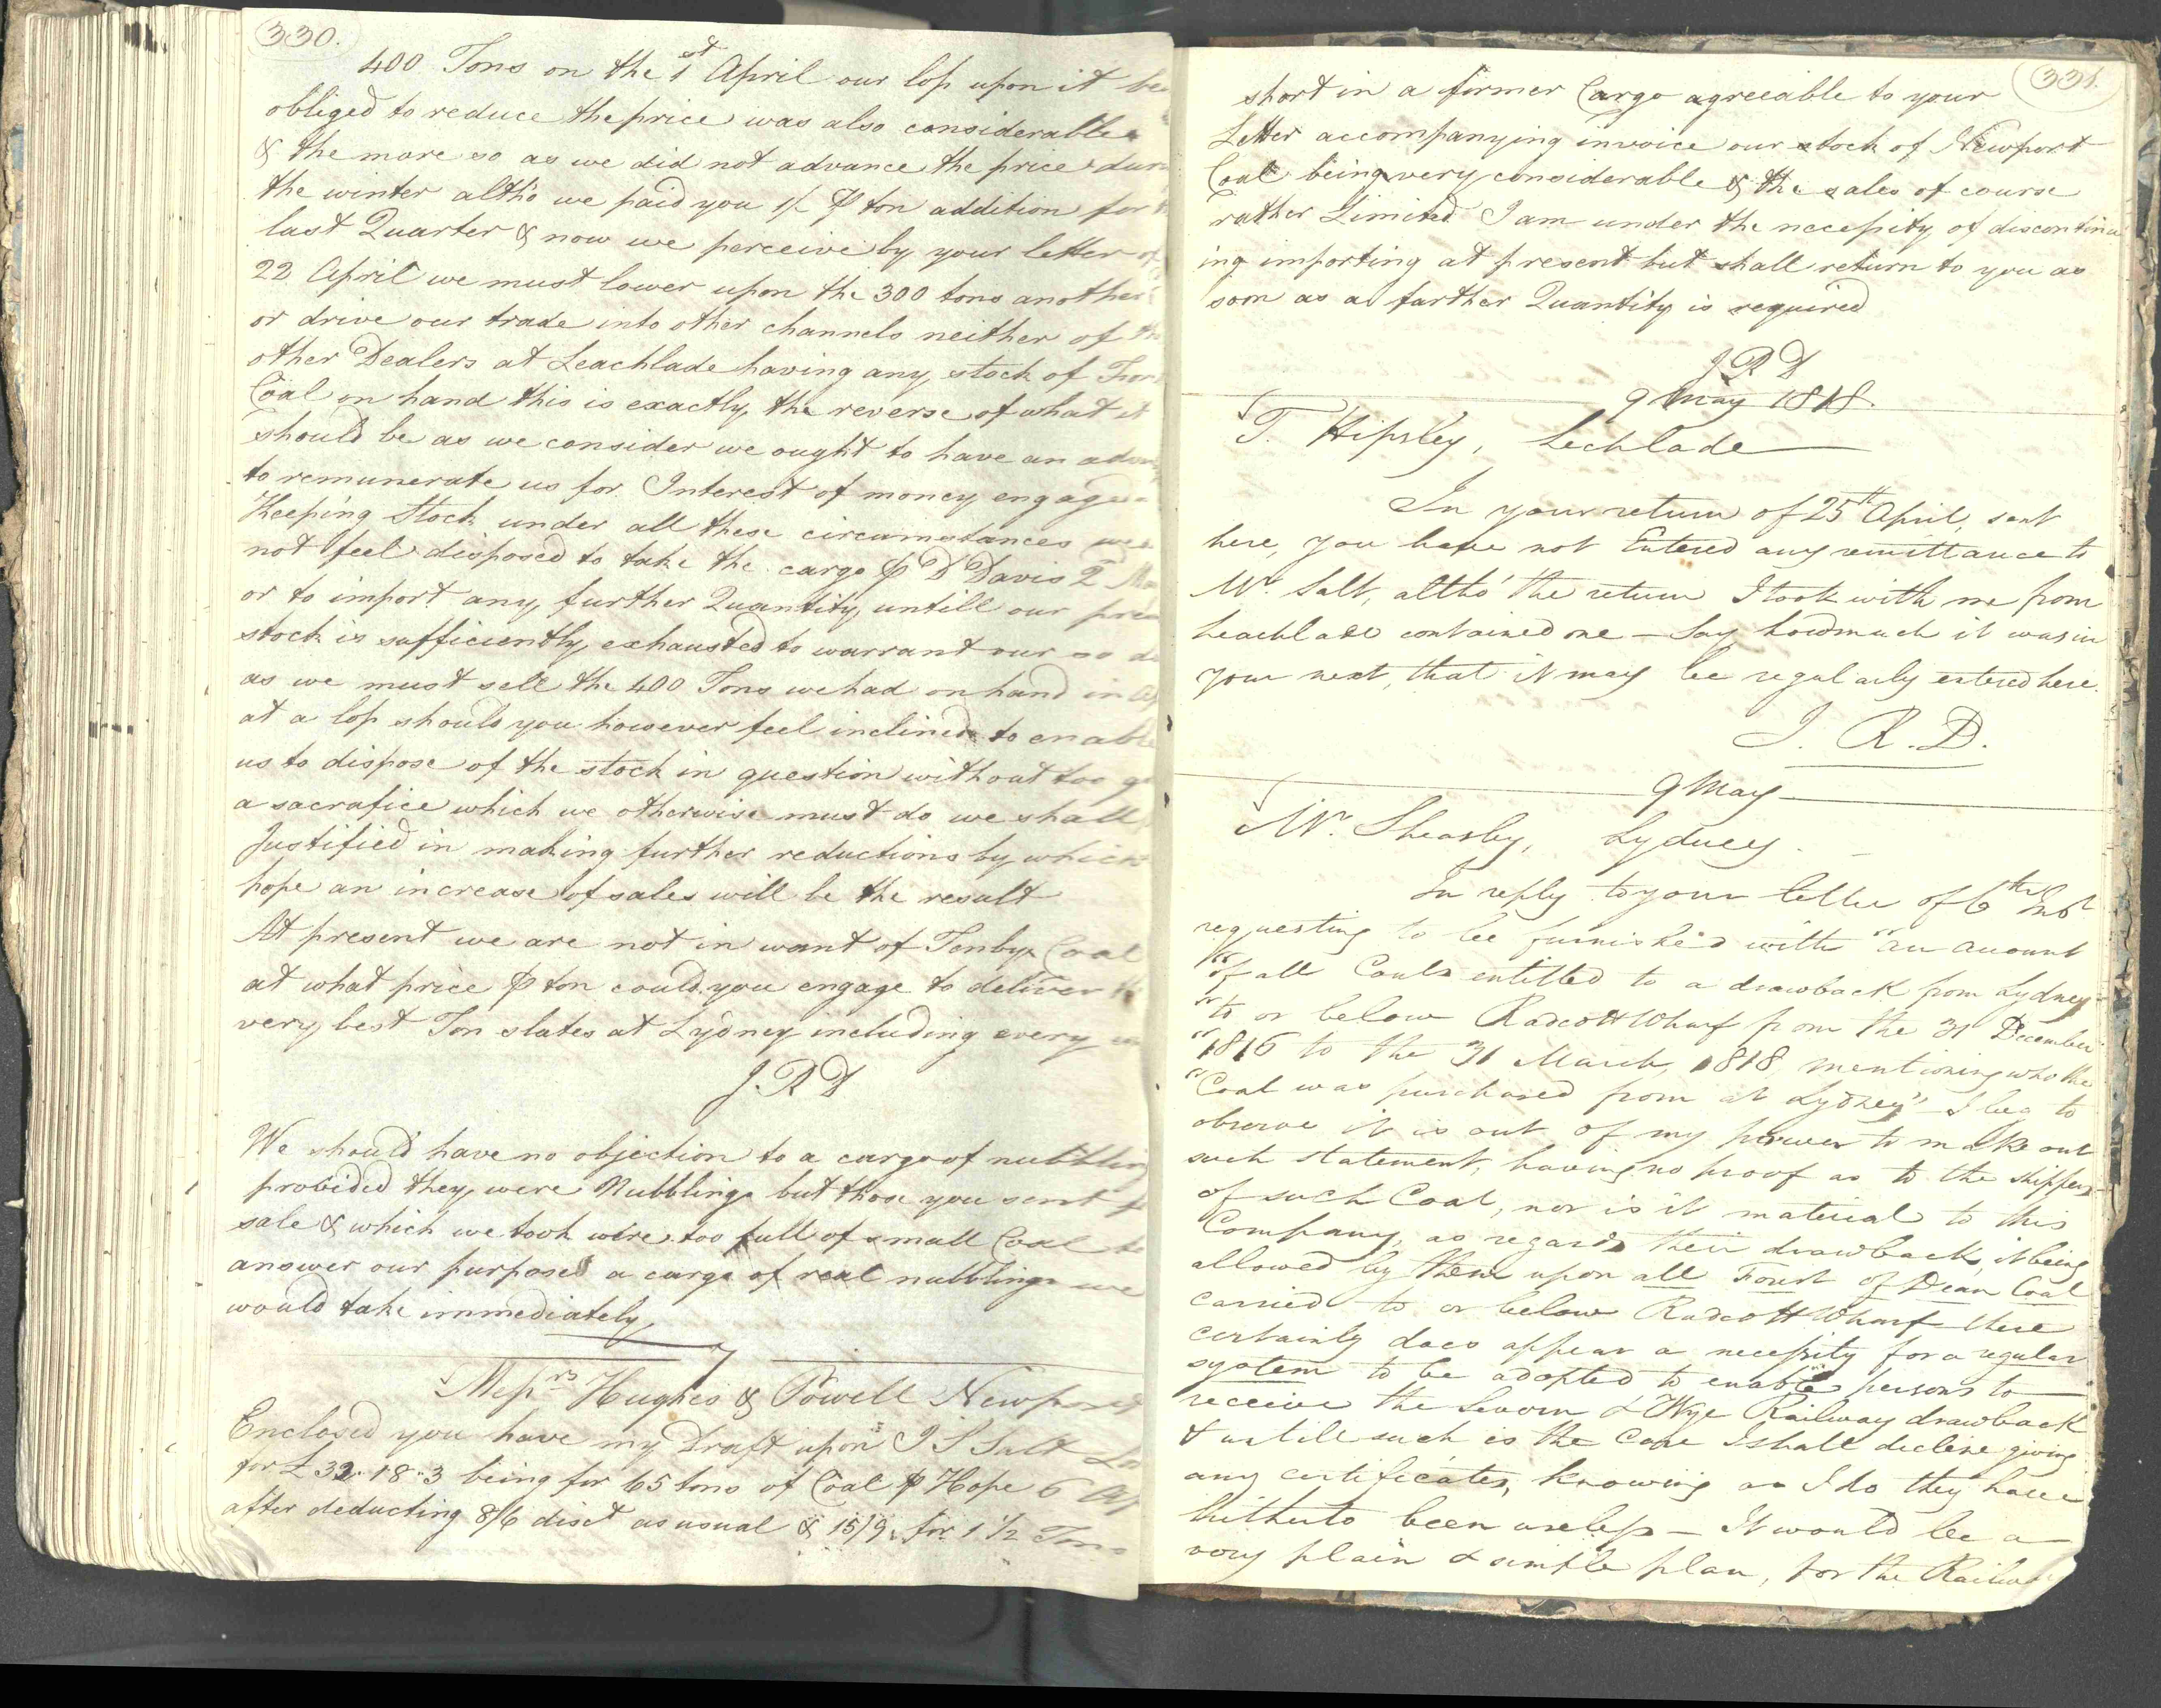 330.
400 Tons on the 1st April our loss upon it
obliged to reduce the price was also considerable
& the more so as we did not advance the price
the winter altho we paid you 1/- ⅌ ton addition for
last Quarter & now we perceive by your letter of
22 April we must lower upon the 300 tons another
or drive our trade into other channels neither of
other Dealers at Leachlade having any stock of
Coal on hand this is exactly the reverse of what it
should be as we consider we ought to have an
to remunerate us for Interest of money engaged
Keeping Stock under all these circumstances we
not feel disposed to take the cargo ⅌ D Davis
or to import any further Quantity untill our
stock is sufficiently exhausted to warrant our so
as we must sell the 400 Tons we had on hand in
at a loss should you however feel inclined to enable
us to dispose of the stock in question without too
a sacrafice which we otherwise must do we shall
Justified in making further reductions by which
hope an increase of sales will be the result
At present we are not in want of Tenby Coal
at what price ⅌ ton could you engage to deliver
very best Ton slates at Lydney including every
J.R D
We should have no objection to a cargo of nubblin
provided they were Nubblings but those you sent
sale & which we took were too full of small Coal
answer our purposes a cargo of real nubblings we
would take immediately
Messrs Hughes & Powell Newport
Enclosed you have my Draft upon J S Salt
for £32..18..3 being for 65 tons of Coal ⅌ Hope 6
after deducting 8/6 disct as usual & 15/9 for 1 1/2 Tons
331.
short in a former Cargo agreeable to your
Letter accompanying invoice our stock of Newport
Coal being very considerable & the sales of course
rather Limited I am under the necessity of discontinu
ing importing at present but shall return to you as
soon as a farther Quantity is required
J R D
9 May 1818.
T. Hipsley, Lechlade
In your return of 25th April, sent
here, you have not Entered any remittance to
Mr. Salt, altho' the return I took with me from
Leachlade contained one – Say how much it was in
your next, that it may be regularly entered here.
J. R. D.
9 May
Mr. Sheasby, Lydney.
In reply to your letter of 6th Inst
requesting to be furnished with "an account
"of all Coals entitled to a drawback from Lydney
"to or below Radcott Wharf from the 31 December
"1816 to the 31 March 1818 mentioning who the
"Coal was purchased from at Lydney" I beg to
observe it is out of my power to make out
such statement, having no proof as to the shippers
of such Coal, nor is it material to this
Company, as regards their drawback, it being
allowed by them upon all Forest of Dean Coal
carried to or below Radcott Wharf there
certainly does appear a necessity for a regular
system to be adopted to enable persons to
receive the Severn & Wye Railway drawback
& untill such is the Case I shall decline giving
any certificates, knowing as I do they have
hitherto been useless – It would be a
very plain & simple plan, for the Railway